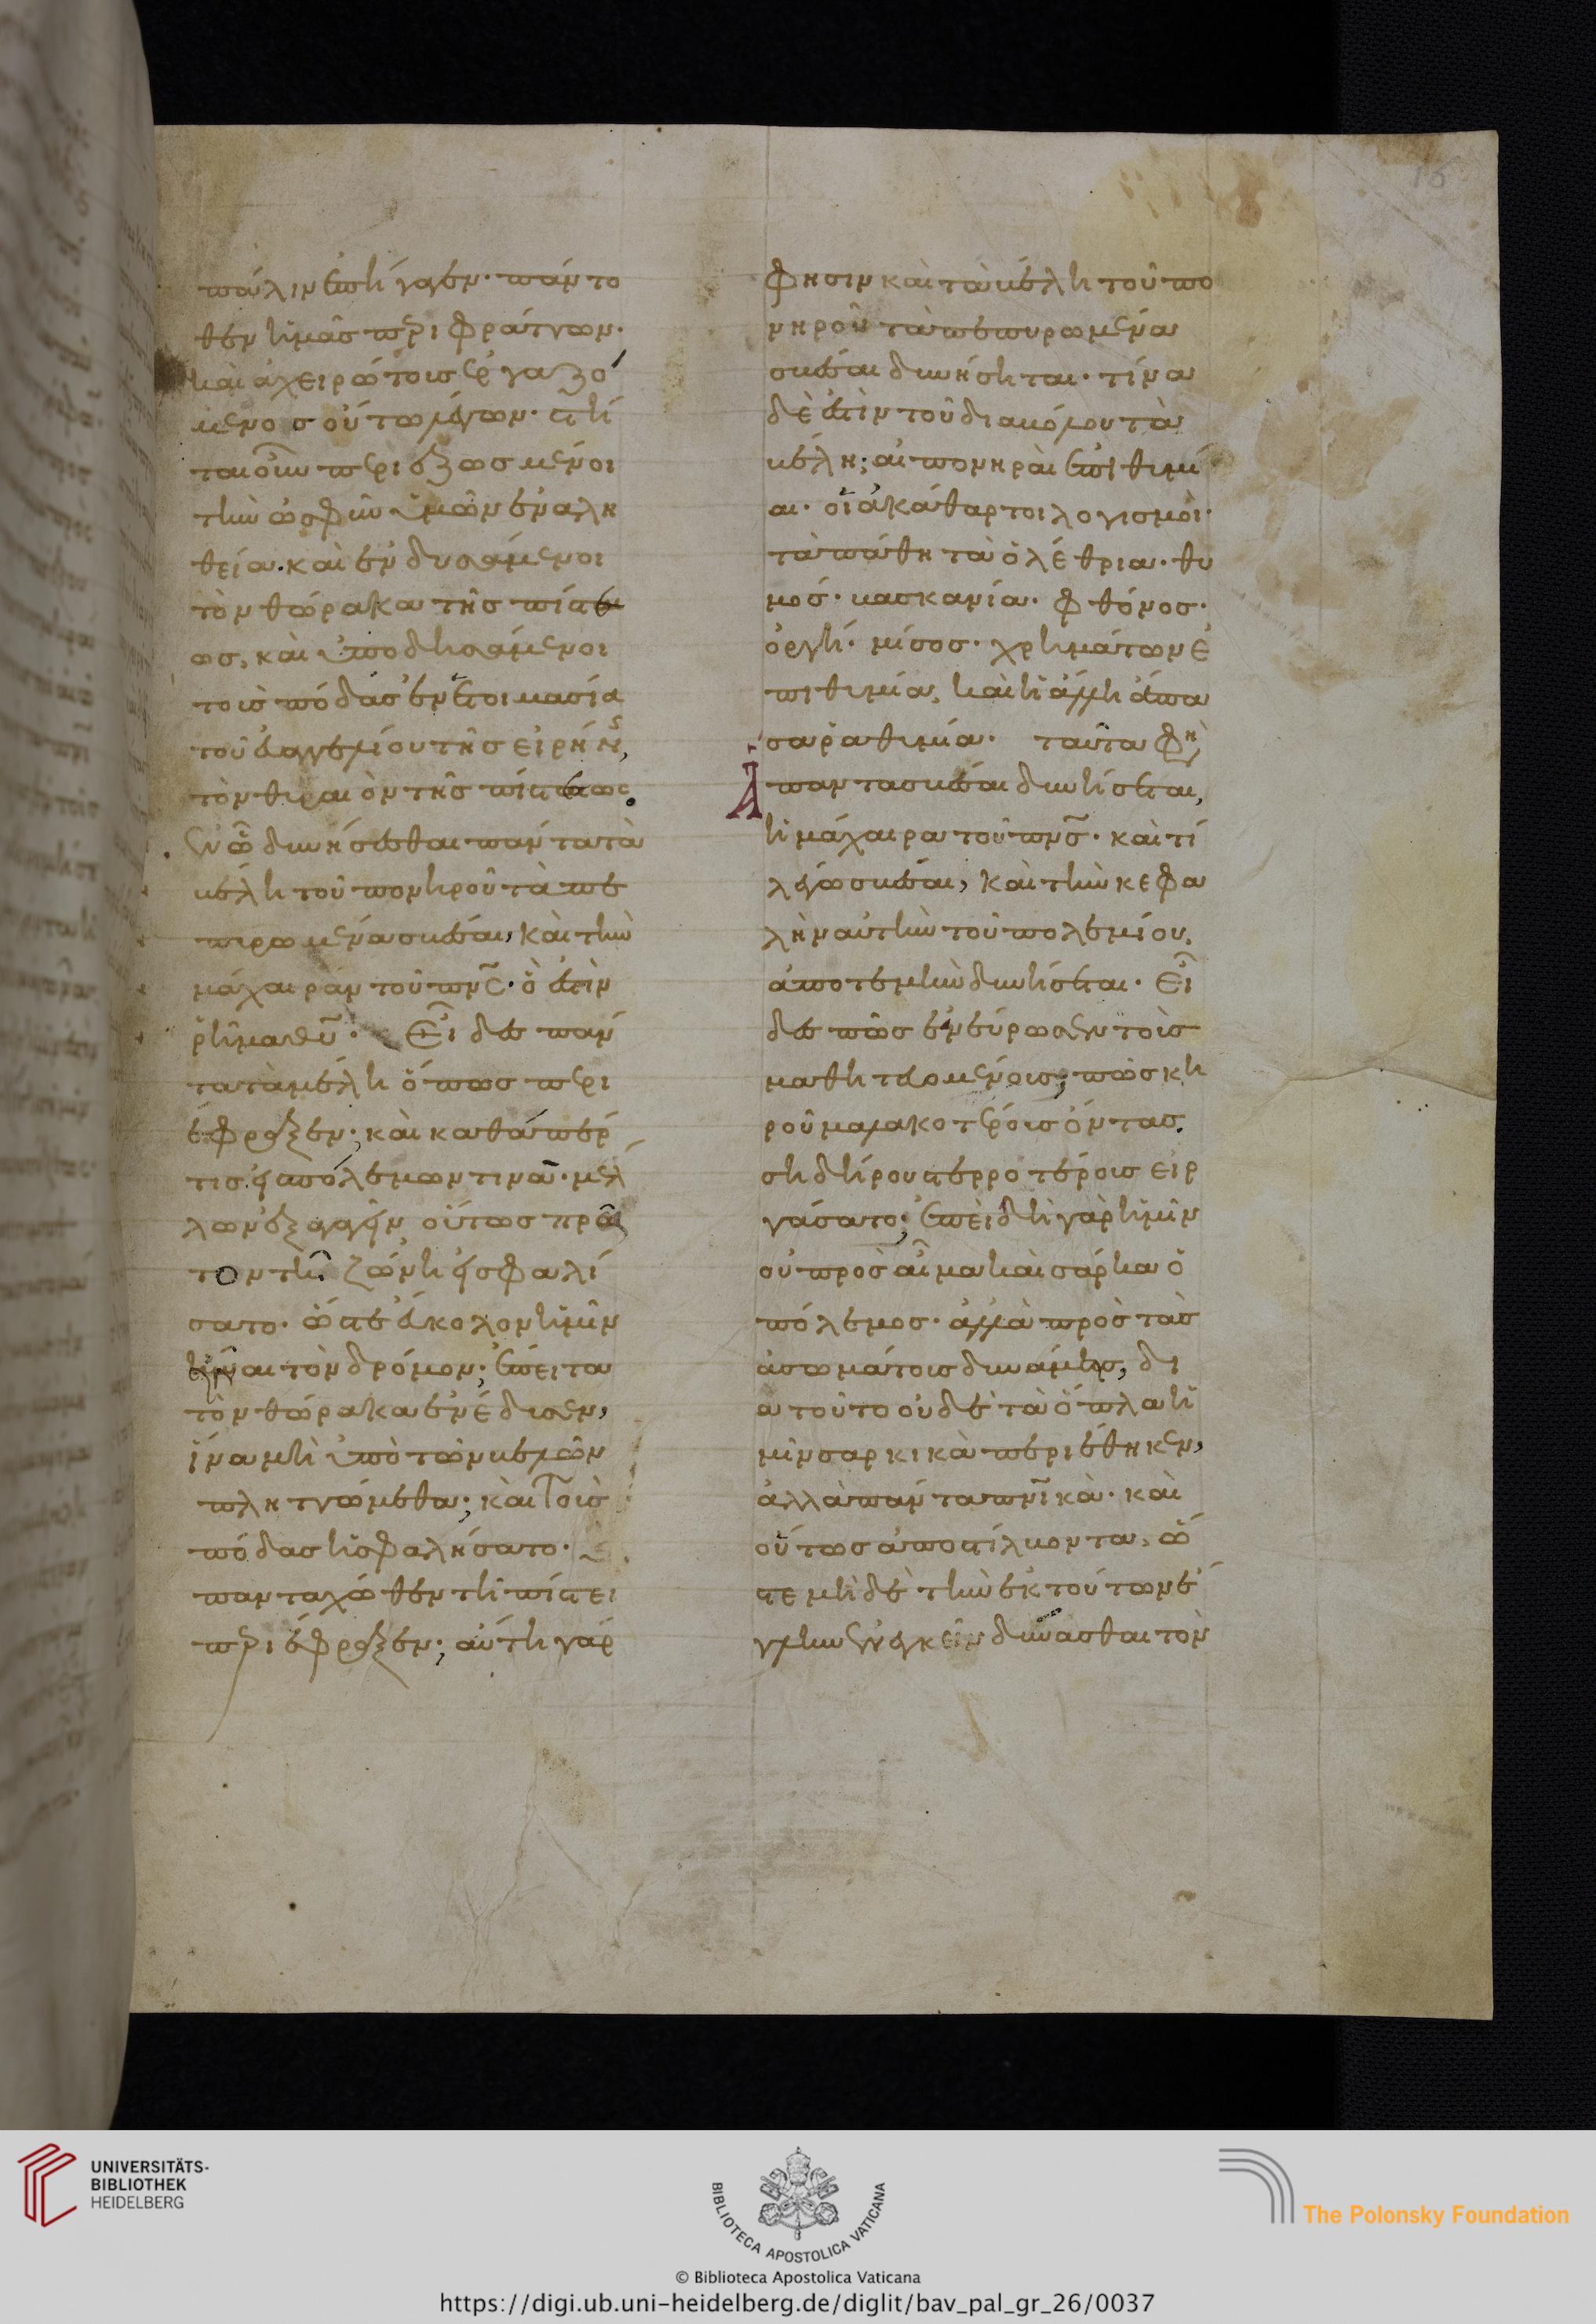 πάλιν ἐπήγαγεν· πάντο
θεν ἡμᾶς περιφράττων·
καὶ ἀχειρώτους ἐργαζό
μενος οὕτω λέγων· στῆ
ται οὖν περιεζωσμένοι
τὴν ὀσφῦν ὑμῶν ἐν ἀλη
θεία· καὶ ἐνδυσάμενοι
τὸν θώρακα τῆς πίστε
ως, καὶ ὑποδησάμενοι
τοὺς πόδας ἐν ἑτοιμασία
τοῦ εὐαγγελίου τῆς εἰρήνης,
τὸν θυραιὸν τῆς πίστεως
ἐν ᾧ δυνήσεσθαι πάντα τὰ
βέλη τοῦ πονηροῦ τὰ πε
πυρωμένα σβέσαι, καὶ τὴν
μάχαιραν τοῦ πνς· ὅ ἐστιν
ῥῆμα θυ· Εἶδες πάν
τα τὰ μέλη ὅπως περι
έφραξεν; καὶ καθάπερ
τις ἐπὶ πόλεμον τινα· μέλ
λων ἐξαγαγεῖν οὕτως πρῶ
τον τῆ ζώνη ἠσφαλί
σατο· ὥστε εὔκολον ἡμῖν
εἶναι τὸν δρόμον; ἔπειτα
τὸν θώρακα ἐνέδυσεν,
ἵνα μὴ ὑπὸ τῶν βελῶν
πληττώμεθα; καὶ τοὺς
πόδας ἠσφαλήσατο·
πανταχῶθεν τῆ πίστει
περιέφραξεν; αὕτη γάρ
φησιν καὶ τὰ βέλη τοῦ πο
νηροῦ τὰ πεπυρωμένα
σβέσαι δυνήσηται· τίνα
δὲ ἐστὶν τοῦ διαβόλου τὰ
βέλη; αἱ πονηραὶ ἐπιθυμί
αι· οἱ ἀκάθαρτοι λογισμοί·
τὰ πάθη τὰ ὀλέθρια· θυ
μός· βασκανία· φθόνος·
ὀργή· μίσος· χρημάτων ἐ
πιθυμία, καὶ ἡ ἄλλη ἅπα
σα ῥαθυμία· ταῦτα φη
Ἅπαντα σβέσαι δυνήσεται,
ἡ μάχαιρα τοῦ πνς· καὶ τί
λέγω σβέσαι, καὶ τὴν κεφα
λὴν αὐτὴν τοῦ πολεμίου,
ἀποτεμεῖν δυνήσεται· Εἶ
δες πῶς ἐνεύρωσεν τοὺς
μαθητευομένους; πῶς κη
ροῦ μαλακοτέρους ὄντας,
σηδήρου στερροτέρους εἰρ
γάσατο; Ἐπειδὴ γὰρ ἡμῖν
οὐ πρὸς αἷμα καὶ σάρκα ὁ
πόλεμος· ἀλλὰ πρὸς τὰς
ἀσωμάτους δυνάμεις, δι
α τοῦτο οὐδὲ τὰ ὅπλα ἡ
μῖν σαρκικὰ περιέθηκεν,
ἀλλὰ πάντα πνικὰ· καὶ
οὕτως ἀποστίλβοντα, ὥ
στε μηδὲ τὴν ἐκ τούτων ἐ
γλην ἐνεγκεῖν δύνασθαι τὸν
UNIVERSITÄTS-
BIBLIOTHEK
HEIDELBERG
BIBLIOTECA APOSTOLICA VATICANA
The Polonsky Foundation
© Biblioteca Apostolica Vaticana
https://digi.ub.uni-heidelberg.de/diglit/bav_pal_gr_26/0037